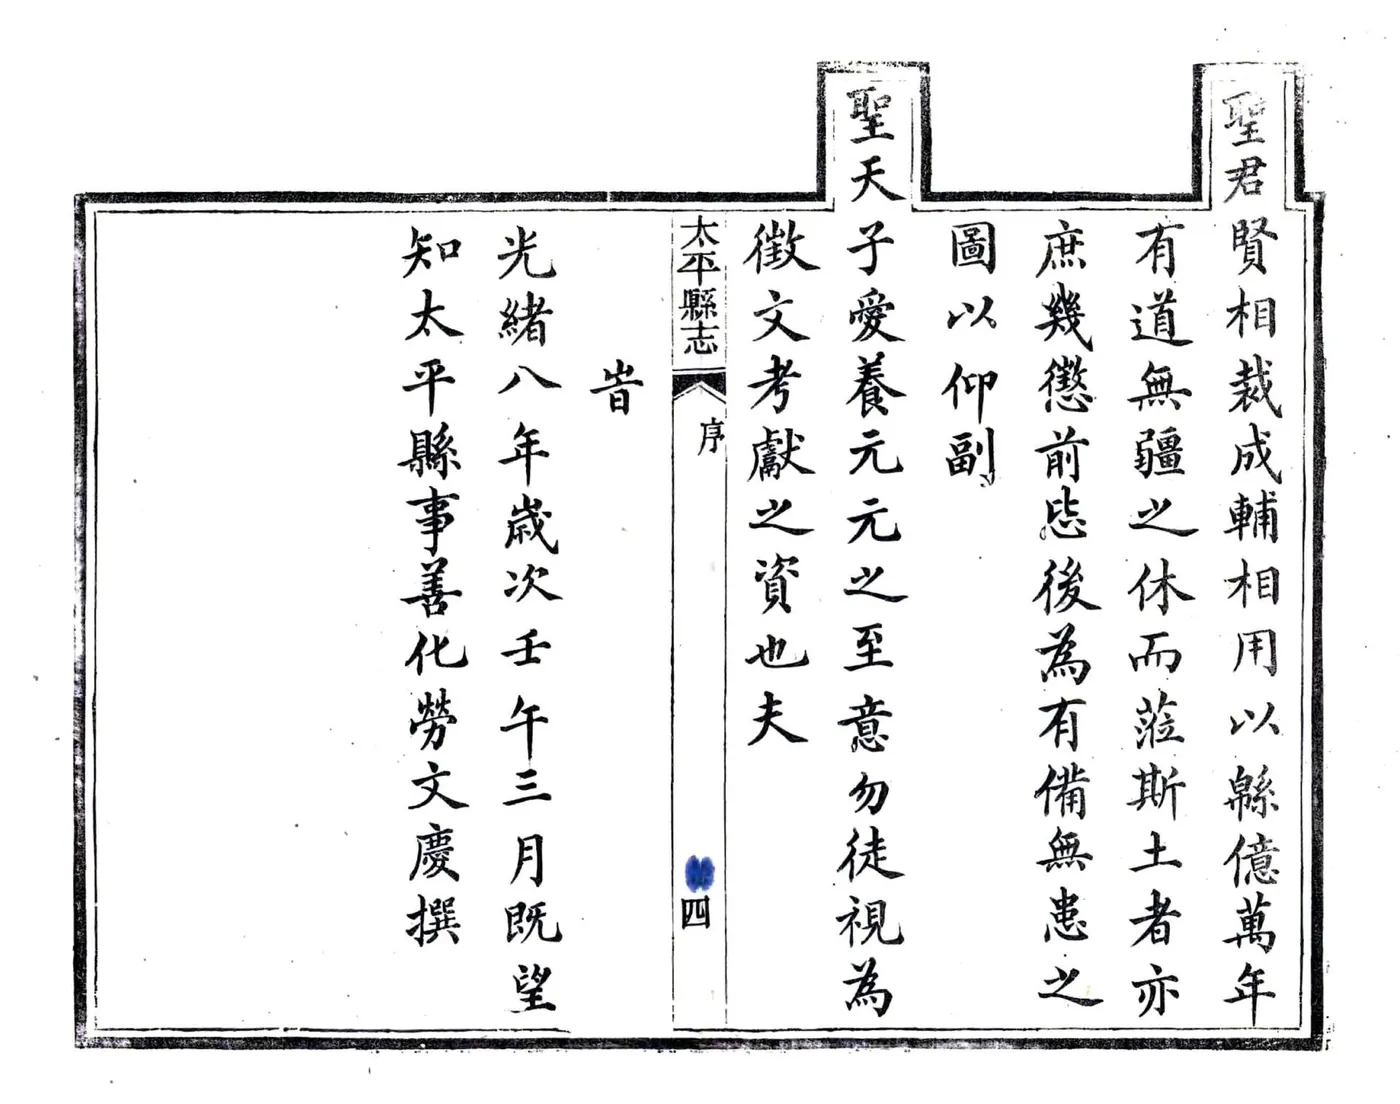 聖君賢相裁成輔相用以緜億萬年
有道無疆之休而蒞斯土者亦
庶幾懲前毖後為有備無患之
圖以仰副
聖天子愛養元元之至意勿徒視為
徵文考獻之資也夫
太平縣志
序
四
旹
光緒八年歲次壬午三月既望
知太平縣事善化勞文慶撰